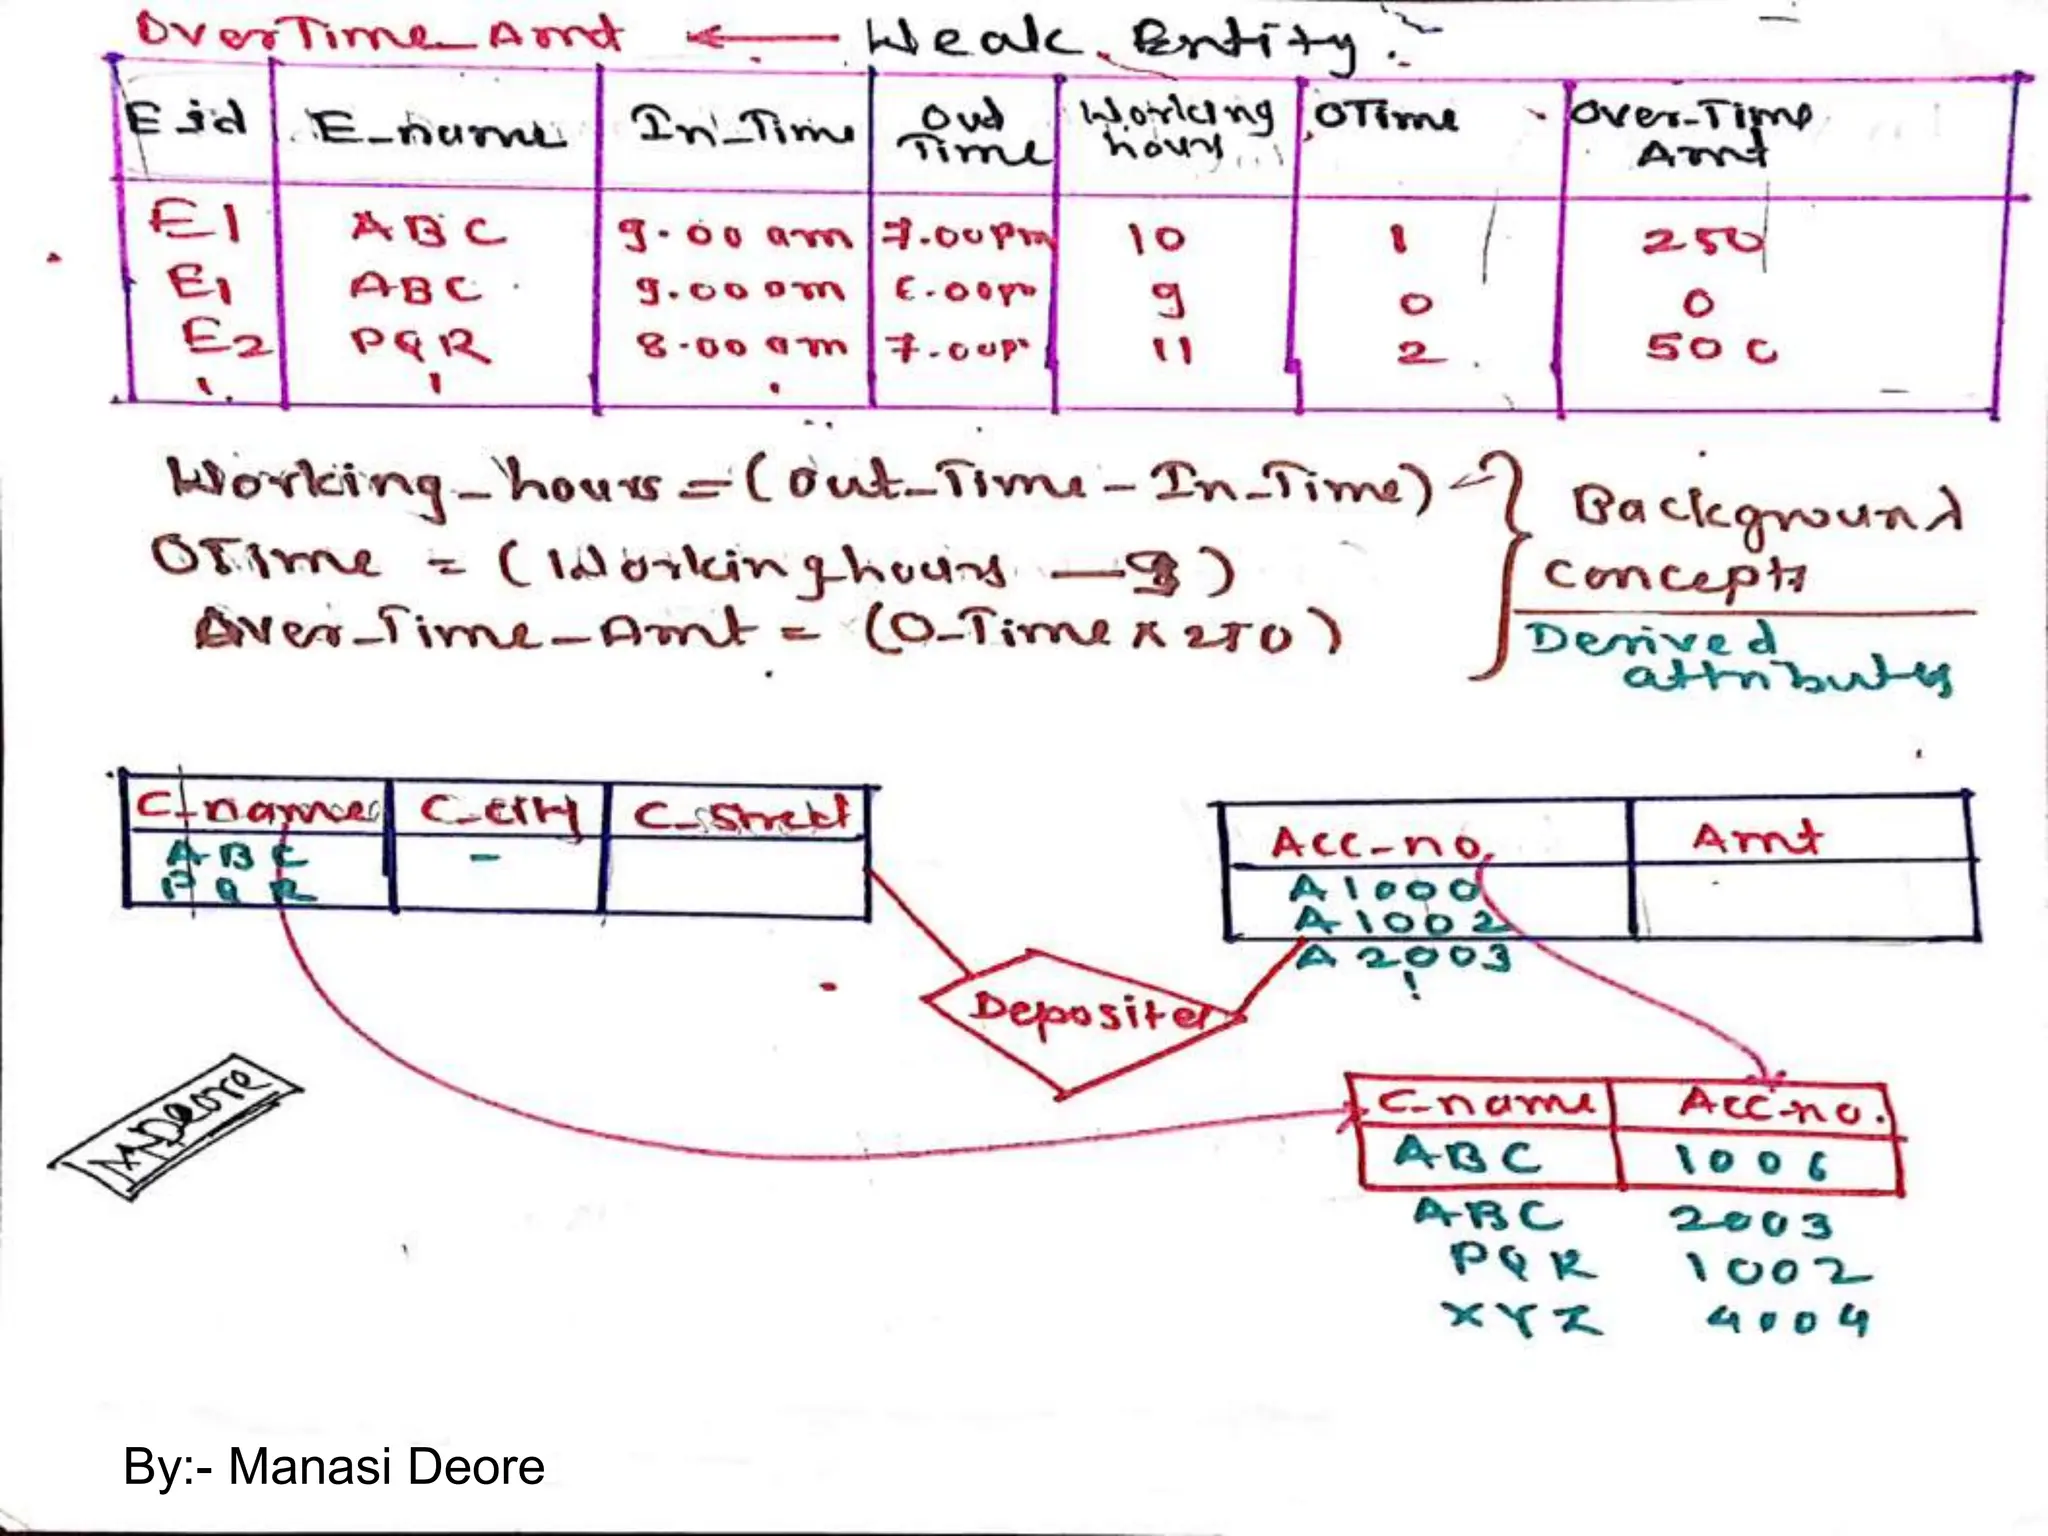 OverTime_Amt ← Weak Entity.
E_id E_name In_Time Out Time Working hours OTime Over_Time Amt
E1 ABC 9.00 am 7.00pm 10 1 250
E1 ABC 9.00 am 6.00pm 9 0 0
E2 PQR 8.00 am 7.00p 11 2 500
Working_hours = (Out_Time - In_Time)
OTime = (Workinghours - 9)
Over_Time_Amt = (O_Time x 250)
Background
concepts
Derived
attributes
C_name C_city C_street
ABC -
PQR
Acc_no. Amt
A1000
A1002
A2003
Depositer
C_name Acc-no.
ABC 1006
ABC 2003
PQR 1002
XYZ 4004
MDeore
By:- Manasi Deore